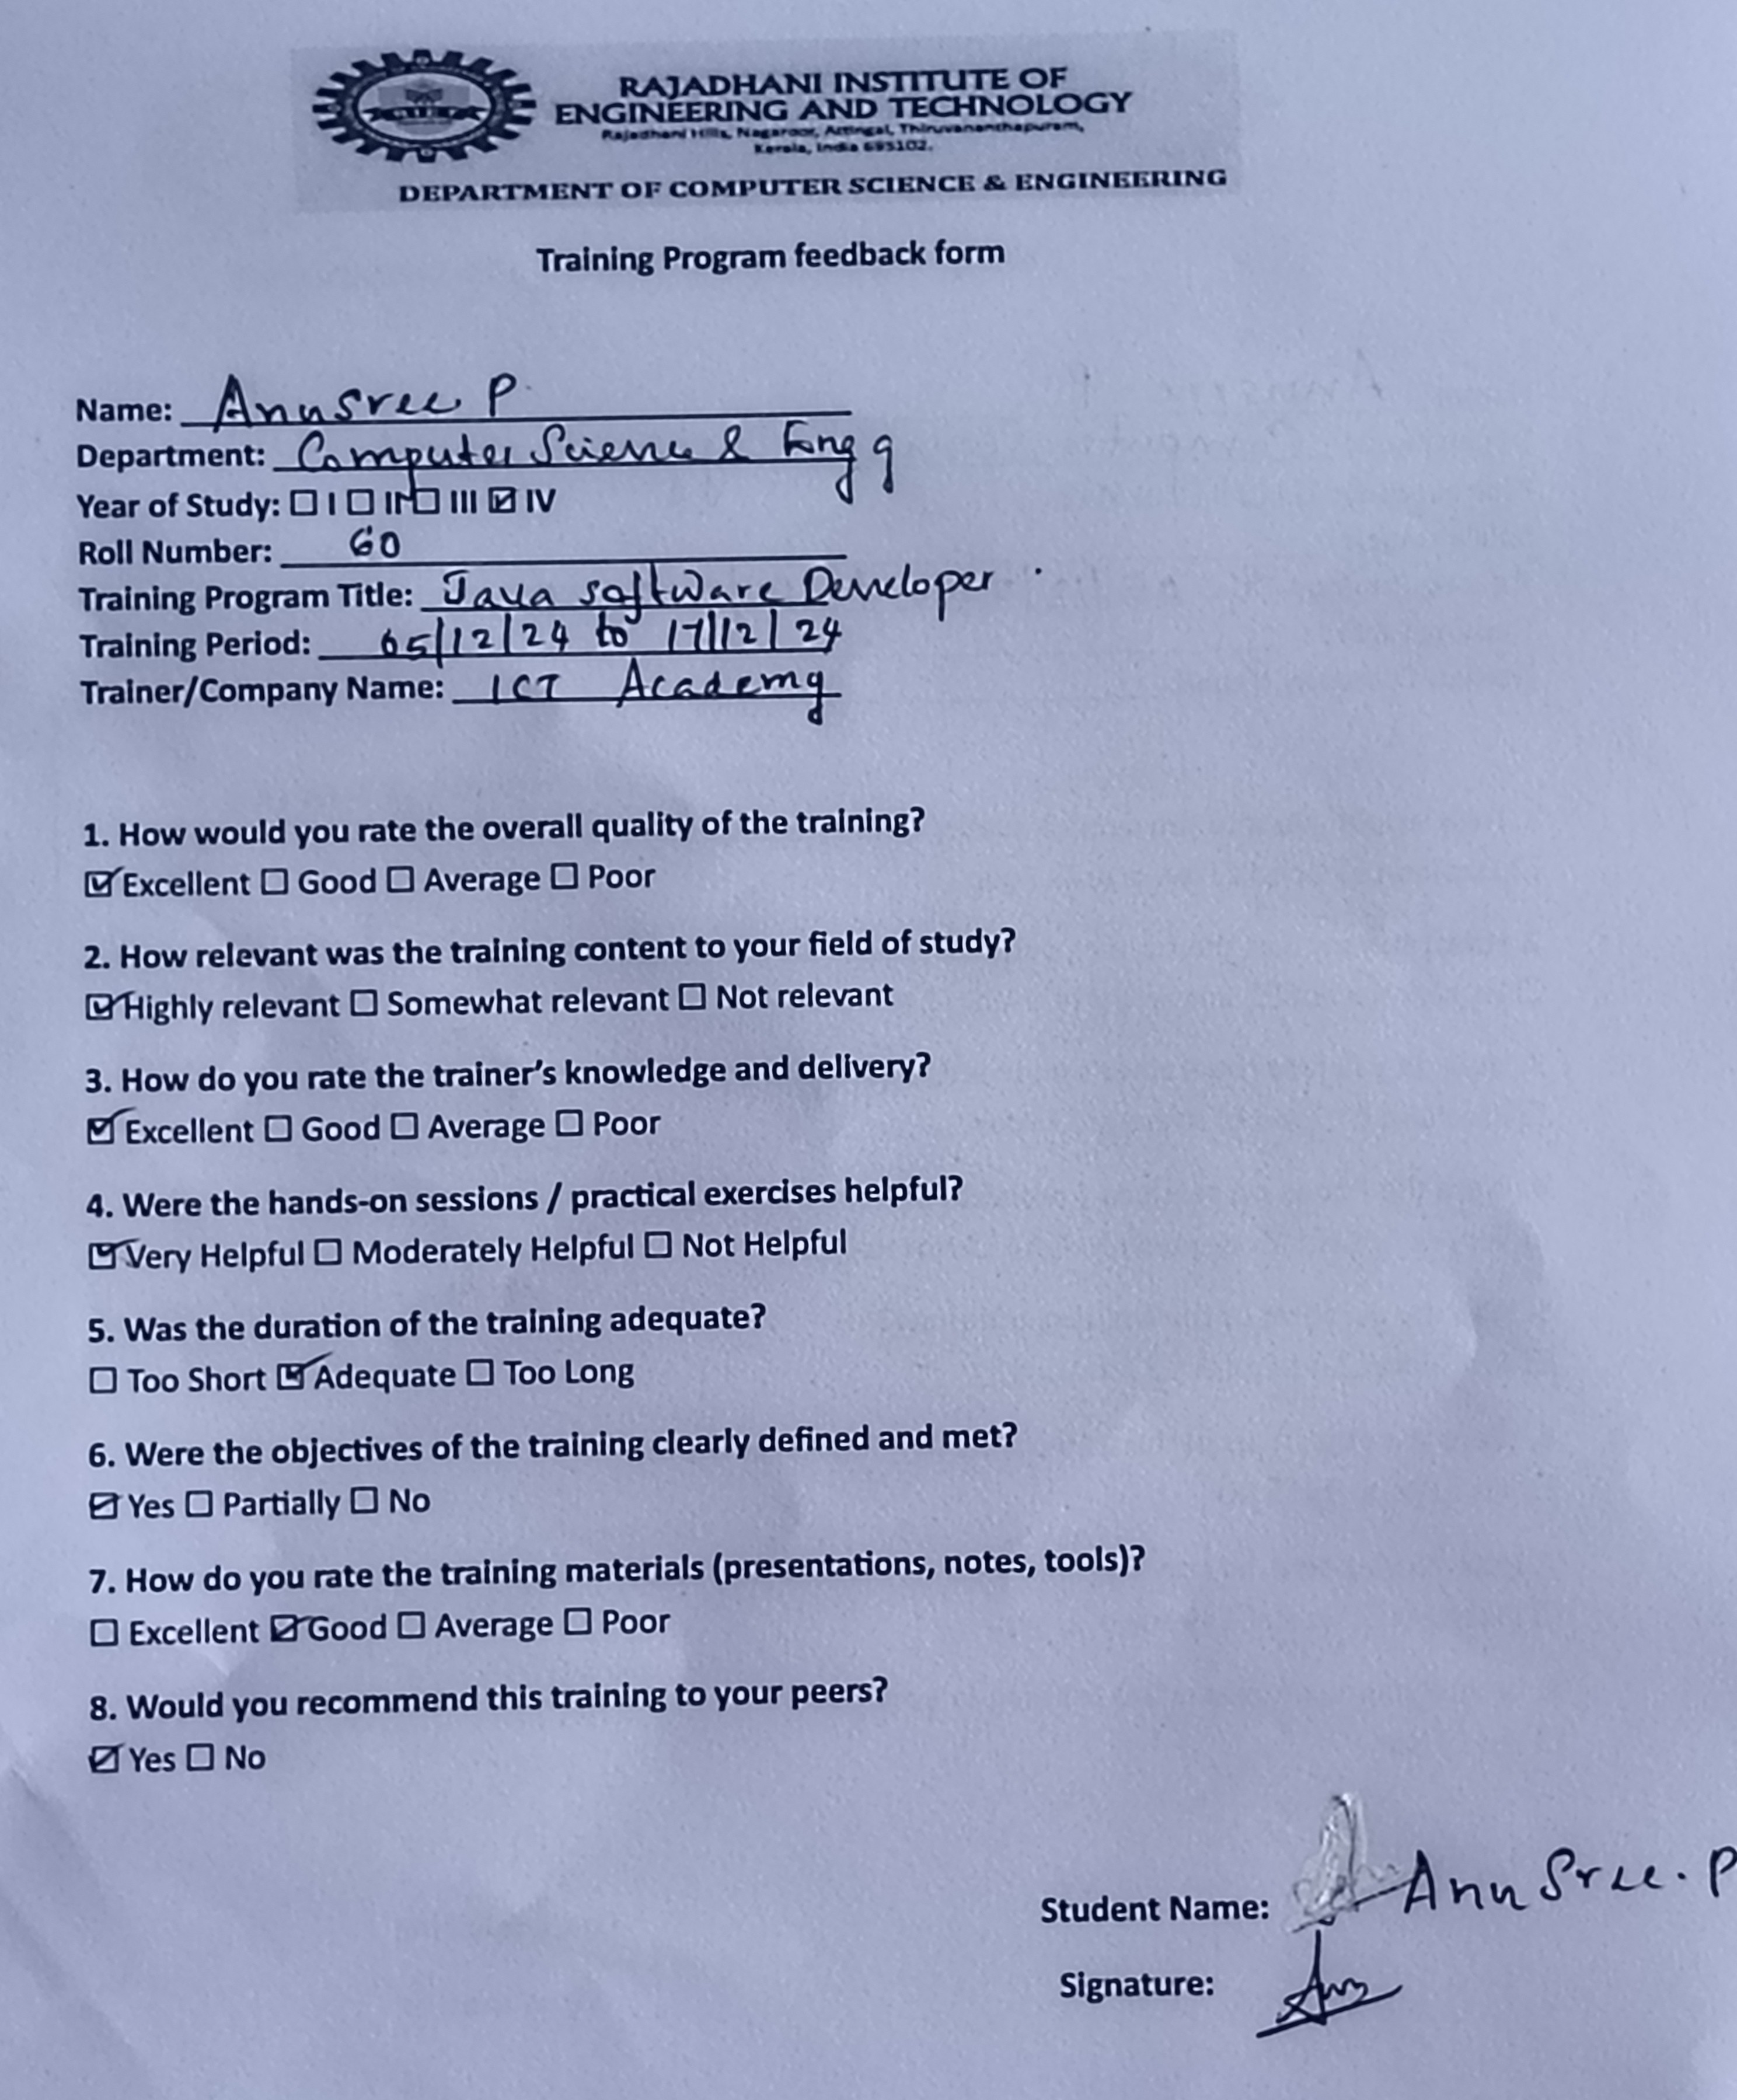 RAJADHANI INSTITUTE OF
ENGINEERING AND TECHNOLOGY
Rajadhani Hills, Nagaroor, Attingal, Thiruvananthapuram,
Kerala, India 695102.
DEPARTMENT OF COMPUTER SCIENCE & ENGINEERING
Training Program feedback form
Name: Anusree P
Department: Computer Science & Engg
Year of Study: ☐ I ☐ II ☐ III ☑ IV
Roll Number: 60
Training Program Title: Java software Developer
Training Period: 05/12/24 to 17/12/24
Trainer/Company Name: ICT Academy
1. How would you rate the overall quality of the training?
☑ Excellent ☐ Good ☐ Average ☐ Poor
2. How relevant was the training content to your field of study?
☑ Highly relevant ☐ Somewhat relevant ☐ Not relevant
3. How do you rate the trainer’s knowledge and delivery?
☑ Excellent ☐ Good ☐ Average ☐ Poor
4. Were the hands-on sessions / practical exercises helpful?
☑ Very Helpful ☐ Moderately Helpful ☐ Not Helpful
5. Was the duration of the training adequate?
☐ Too Short ☑ Adequate ☐ Too Long
6. Were the objectives of the training clearly defined and met?
☑ Yes ☐ Partially ☐ No
7. How do you rate the training materials (presentations, notes, tools)?
☐ Excellent ☑ Good ☐ Average ☐ Poor
8. Would you recommend this training to your peers?
☑ Yes ☐ No
Student Name: Anu Sree. P
Signature: